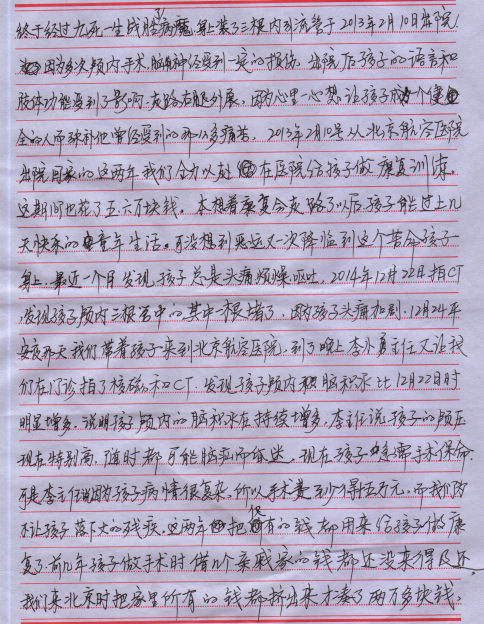 终于经过九死一生战胜病魔,身上装了三根内引流管于2013年2月10日出院!
因为多次颅内手术,脑神经受到一定的损伤,出院后孩子的语言和
肢体功能受到了影响,走路右腿外展,因为心里一心想让孩子成为个健
全的人而弥补他曾经受到的那么多痛苦。2013年2月10号从北京航空医院
出院回家的这两年我们全力以赴在医院给孩子做康复训练。
这期间也花了五六万块钱。本想着康复会走路了以后孩子能过上几
天快乐的童年生活。可没想到恶运又一次降临到这个苦命孩子
身上,最近一个月发现孩子总是头痛烦燥呕吐,2014年12月22日拍CT
发现孩子颅内三根管中的其中一根堵了,因为孩子头痛加剧,12月24平
安夜那天我们带着孩子来到北京航空医院,到了晚上李小勇主任又让我
们在门诊拍了核磁和CT,发现孩子颅内积脑积水比12月22日时
明显增多,说明孩子颅内的脑积水在持续增多,李主任说孩子的颅压
现在特别高,随时都可能脑疝而昏迷,现在孩子急需手术保命,
可是李主任说因为孩子病情很复杂,所以手术费至少得五万元,而我们为
不让孩子落下大的残疾,这两年把所有的钱都用来给孩子做康
复了,前几年孩子做手术时借几个亲戚家的钱都还没来得及还,
我们来北京时把家里所有的钱都拼出来才凑了两万多块钱,